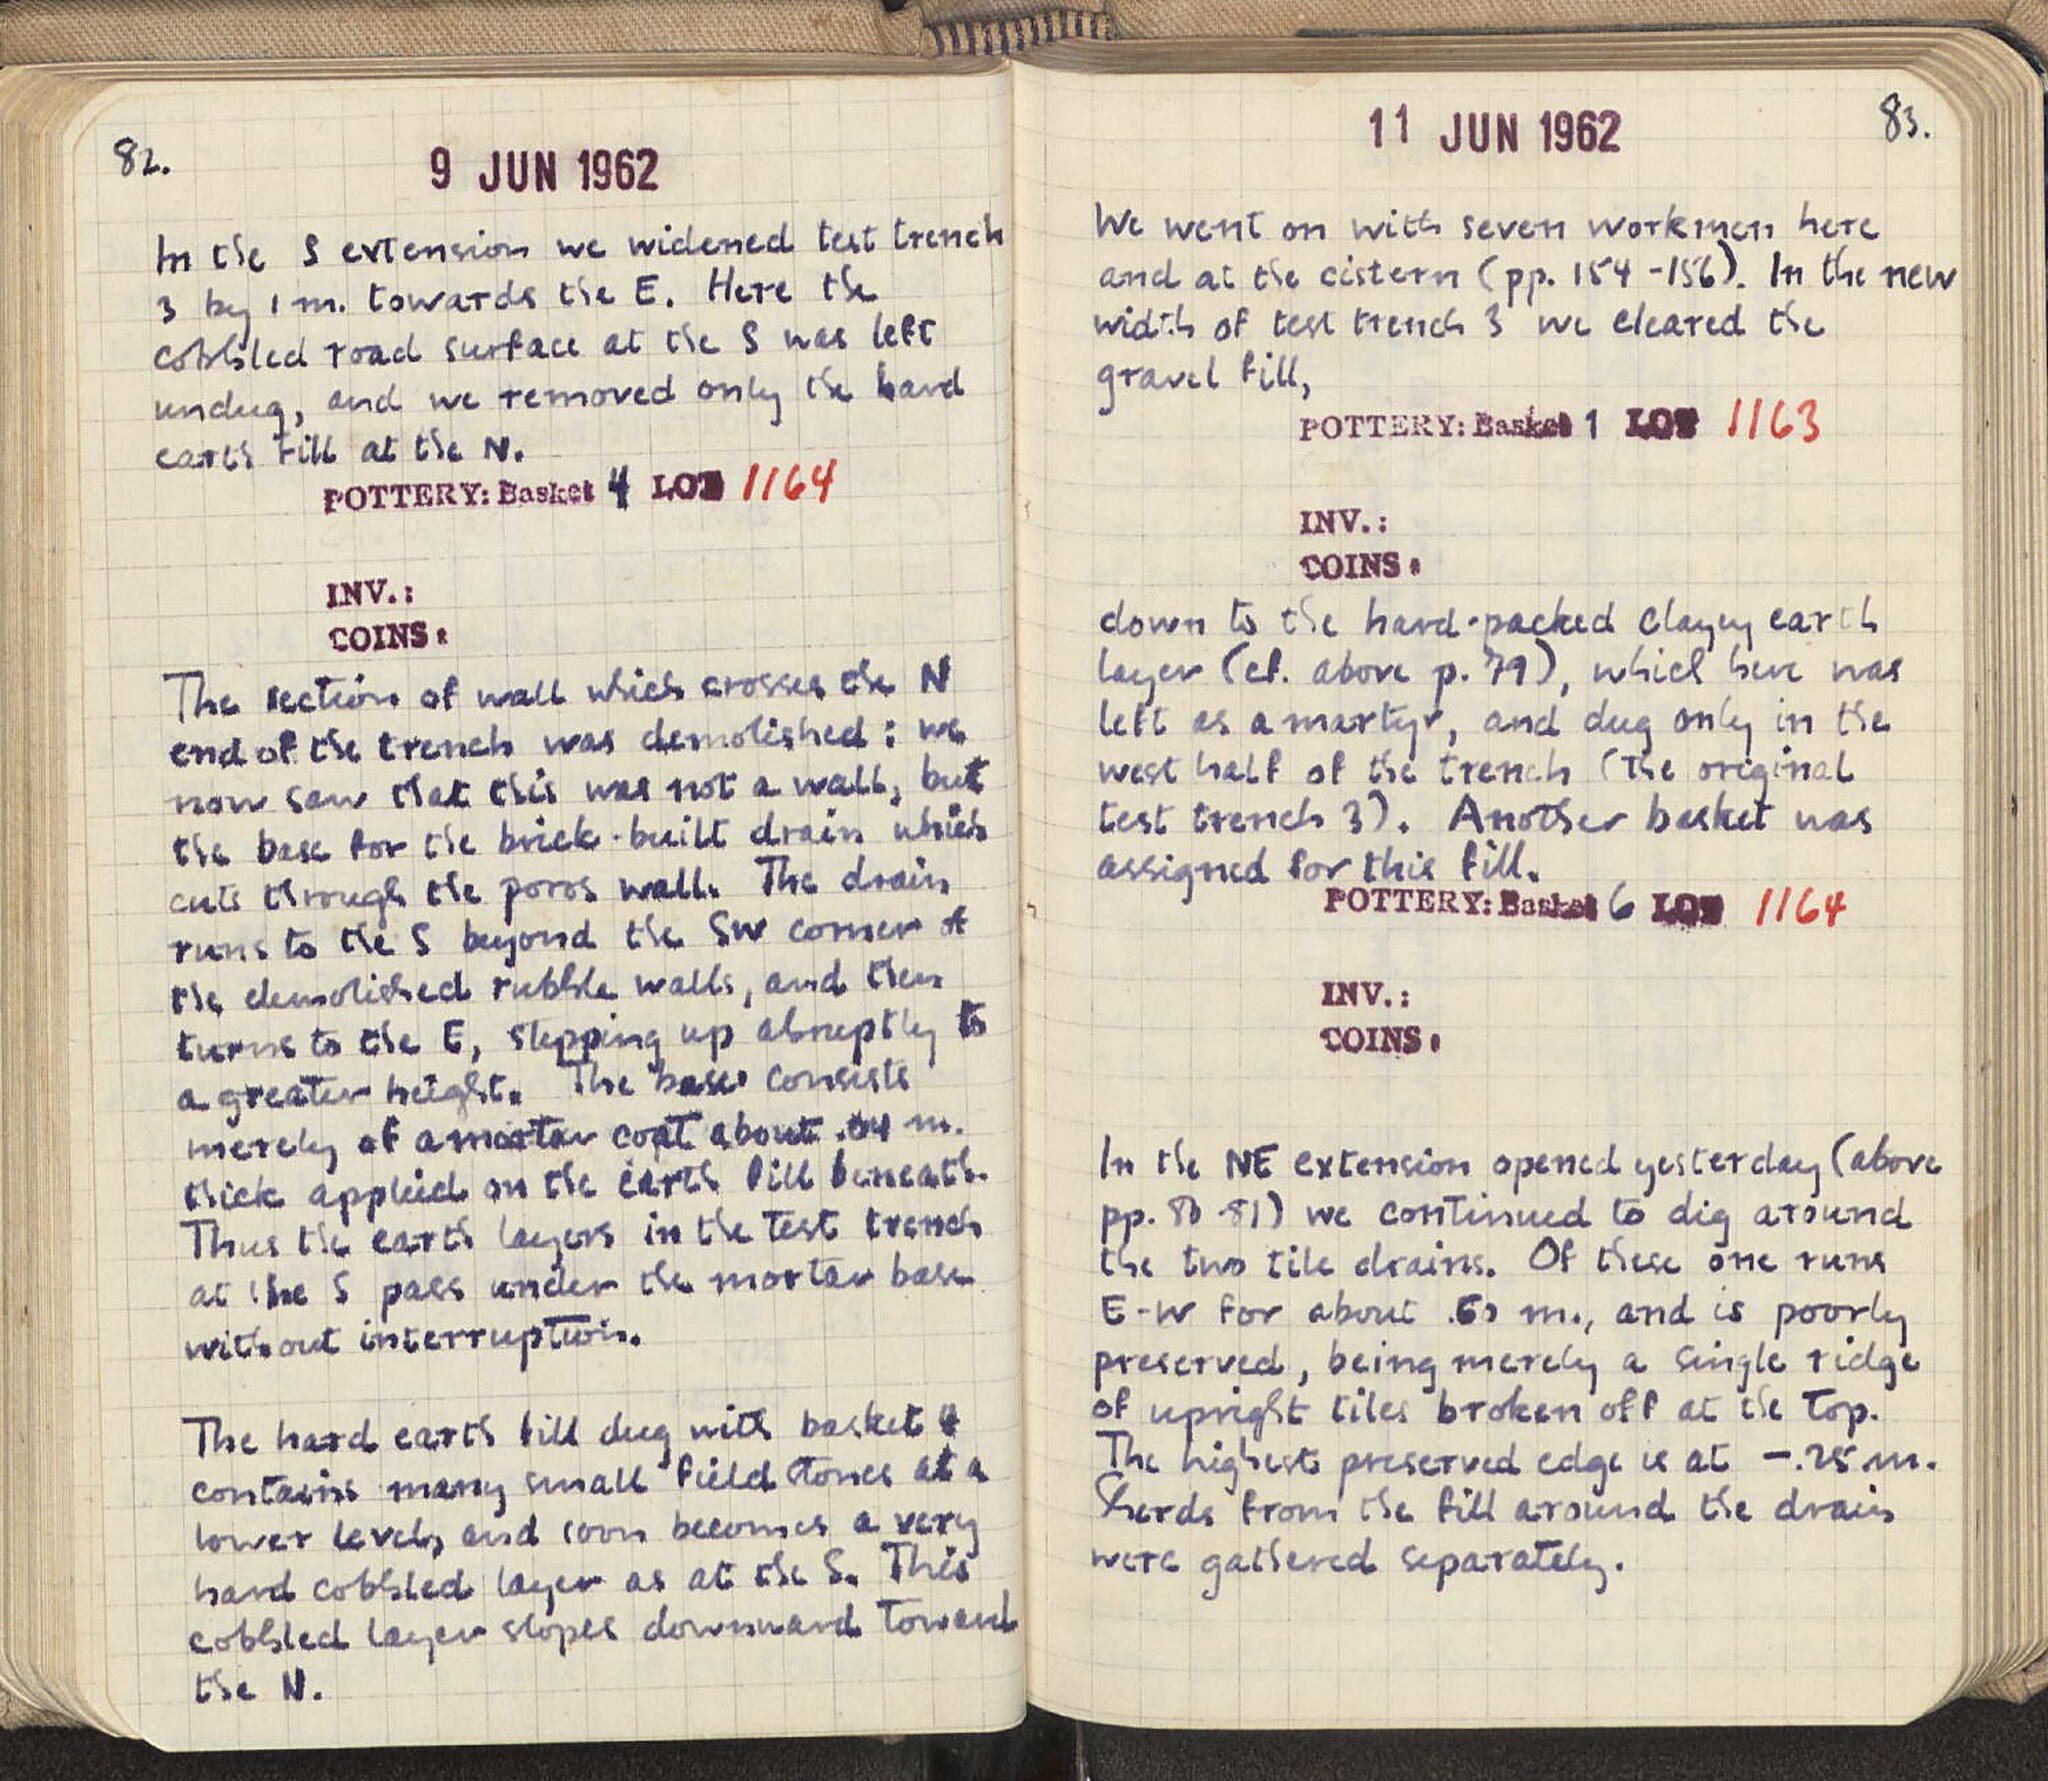 82.
9 JUN 1962
In the S extension we widened test trench
3 by 1 m. towards the E. Here the
cobbled road surface at the S was left
undug, and we removed only the hard
earth fill at the N.
POTTERY: Basket 4 LOT 1164
INV.:
COINS:
The section of wall which crosses the N
end of the trench was demolished: we
now saw that this was not a wall, but
the base for the brick-built drain which
cuts through the poros wall. The drain
runs to the S beyond the SW corner of
the demolished rubble walls, and then
turns to the E, stepping up abruptly to
a greater height. The base consists
merely of a mortar coat about .04 m.
thick applied on the earth fill beneath.
Thus the earth layers in the test trench
at the S pass under the mortar base
without interruption.
The hard earth fill dug with basket 4
contains many small field stones at a
lower level, and soon becomes a very
hard cobbled layer as at the S. This
cobbled layer slopes downward toward
the N.
83.
11 JUN 1962
We went on with seven workmen here
and at the cistern (pp. 154-156). In the new
width of test trench 3 we cleared the
gravel fill,
POTTERY: Basket 1 LOT 1163
INV.:
COINS:
down to the hard-packed clayey earth
layer (cf. above p. 79), which here was
left as a martyr, and dug only in the
west half of the trench (the original
test trench 3). Another basket was
assigned for this fill.
POTTERY: Basket 6 LOT 1164
INV.:
COINS:
In the NE extension opened yesterday (above
pp. 80-81) we continued to dig around
the two tile drains. Of these one runs
E-W for about .60 m., and is poorly
preserved, being merely a single ridge
of upright tiles broken off at the top.
The highest preserved edge is at -.25 m.
Sherds from the fill around the drain
were gathered separately.